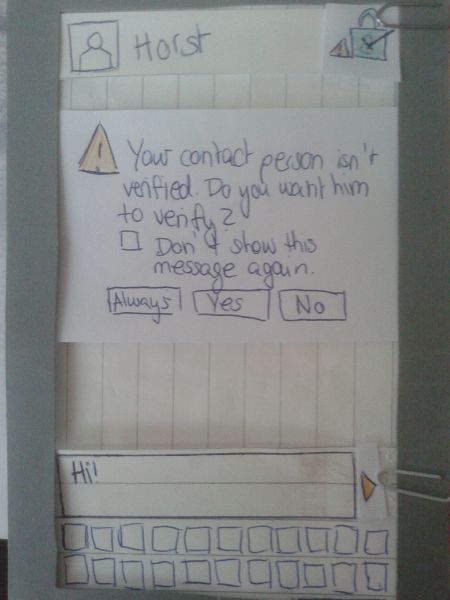 Horst
! Your contact person isn't
verified. Do you want him
to verify?
Don't show this
message again.
Always Yes No
Hi!